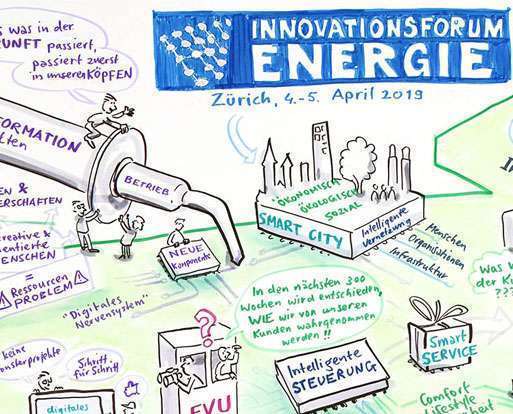 S WAS IN DER
KUNFT PASSIERT,
PASSIERT ZUERST
IN UNSEREN KÖPFEN
INNOVATIONSFORUM
ENERGIE
Zürich, 4.-5. April 2019
FORMATION
lten
BETRIEB
EN &
ERSCHAFTEN
eative &
entierte
ENSCHEN
=
Ressourcen
PROBLEM
NEUE
Komponente
"Digitales
Nervensystem"
ÖKONOMISCH
ÖKOLOGISCH
SOZIAL
SMART CITY
Intelligente
Vernetzung
Menschen
Organisationen
Infrastruktur
In den nächsten 300
Wochen wird entschieden,
WIE wir von unseren
Kunden wahrgenommen
werden !!
Was
der Ku
???
keine
onsterprojekte
Schritt
für Schritt
digitales
?
EVU
Intelligente
STEUERUNG
Smart
SERVICE
Comfort
ifestyle